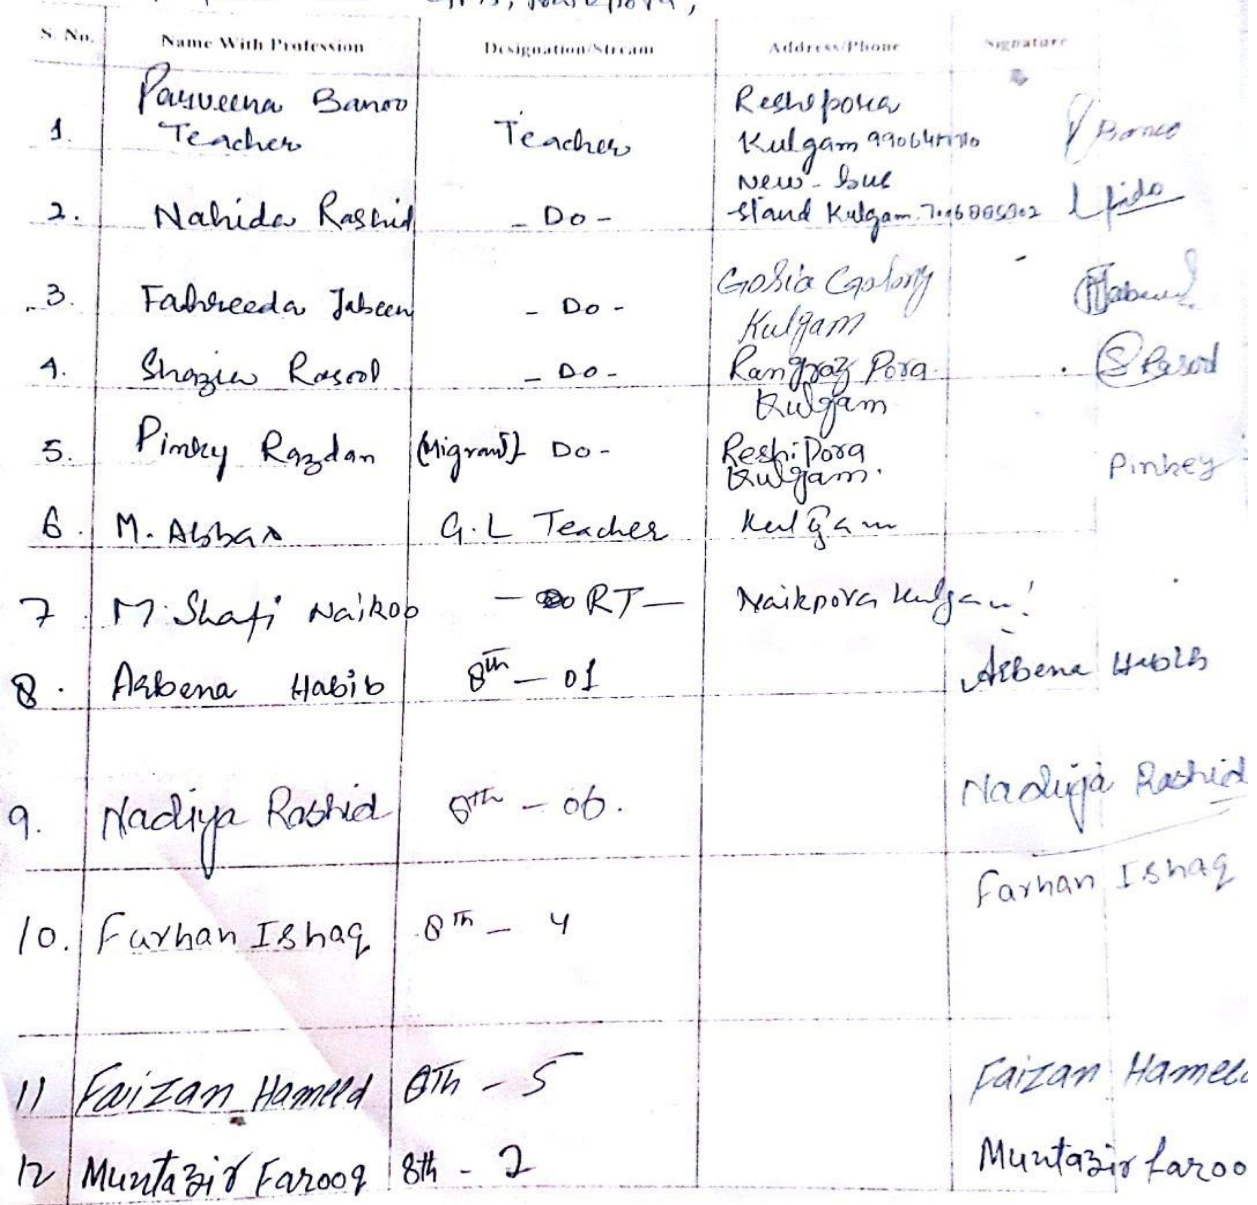 S. No. Name With Profession Designation/Stream Address/Phone Signature
1. Parveena Banoo Teacher Reshipora
Teacher Kulgam Banoo
2. Nahida Rashid - Do - New - bus
stand Kulgam.
3. Fahreeda Jabeen - Do - Gosia Coolony
Kulgam
4. Shazia Rasool - Do - Rangraz Pora S Rasool
Kulgam
5. Pinky Razdan (Migrant) Do - Reshi Pora Pinkey
Kulgam.
6. M. Abbas G.L Teacher Kulgam
7 M. Shafi Naikoo - RT - Naikpora Kulgam
8. Arbena Habib 8th - 01 Arbena Habib
9. Nadiya Rashid 8th - 06. Nadiya Rashid
10. Farhan Ishaq 8Th - 4 Farhan Ishaq
11 Faizan Hameed 8Th - 5 Faizan Hameed
12 Muntazir Farooq 8th - 2 Muntazir Faroo